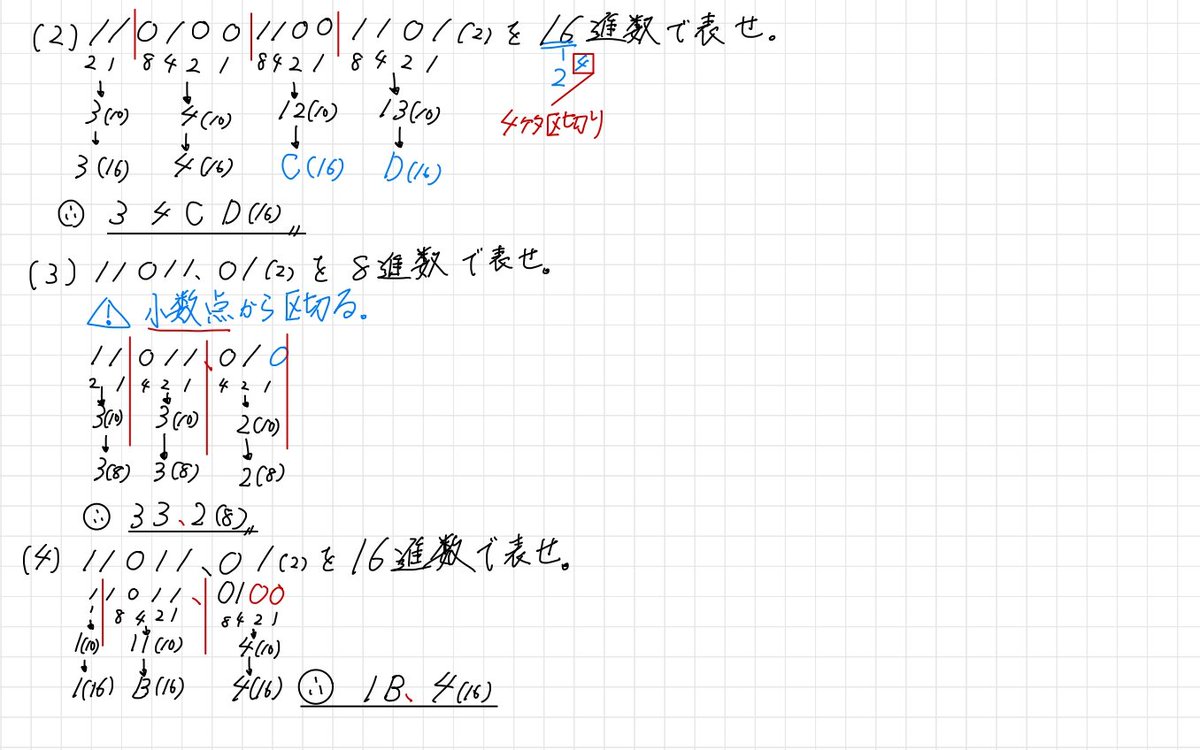 (2) 11|0100|1100|1101(2)を16進数で表せ。
2 1 8 4 2 1 8 4 2 1 8 4 2 1 2 4
↓ ↓ ↓ ↓
3(10) 4(10) 12(10) 13(10) 4ケタ区切り
↓ ↓ ↓ ↓
3(16) 4(16) C(16) D(16)
∴ 3 4 C D(16)〃
(3) 11011、01(2)を8進数で表せ。
⚠ 小数点から区切る。
11|011、010|
2 1 4 2 1 4 2 1
↓ ↓ ↓
3(10) 3(10) 2(10)
↓ ↓ ↓
3(8) 3(8) 2(8)
∴ 33、2(8)〃
(4) 11011、01(2)を16進数で表せ。
1|1011、|0100
1 8 4 2 1 8 4 2 1
↓ ↓ ↓
1(10) 11(10) 4(10)
↓ ↓ ↓
1(16) B(16) 4(16) ∴ 1B、4(16)